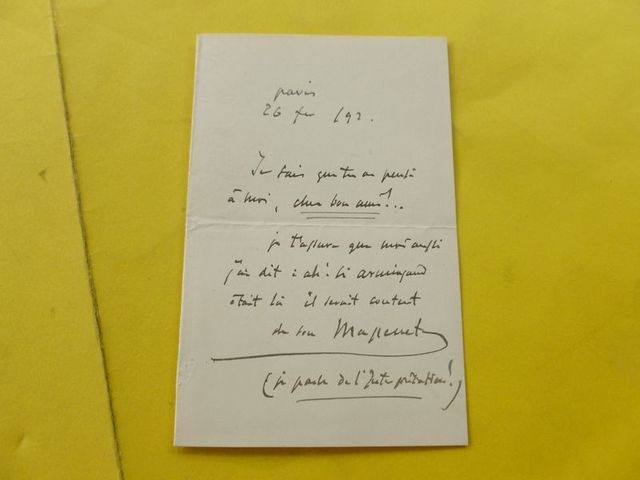 Paris
26 fev /92.
Je sais que tu as pensé
à moi, cher bon ami!..
je t'assure que moi aussi
j'ai dit : ah! si Armingaud
était là il serait content
de son Massenet
(je parle de l'Interprétation!)